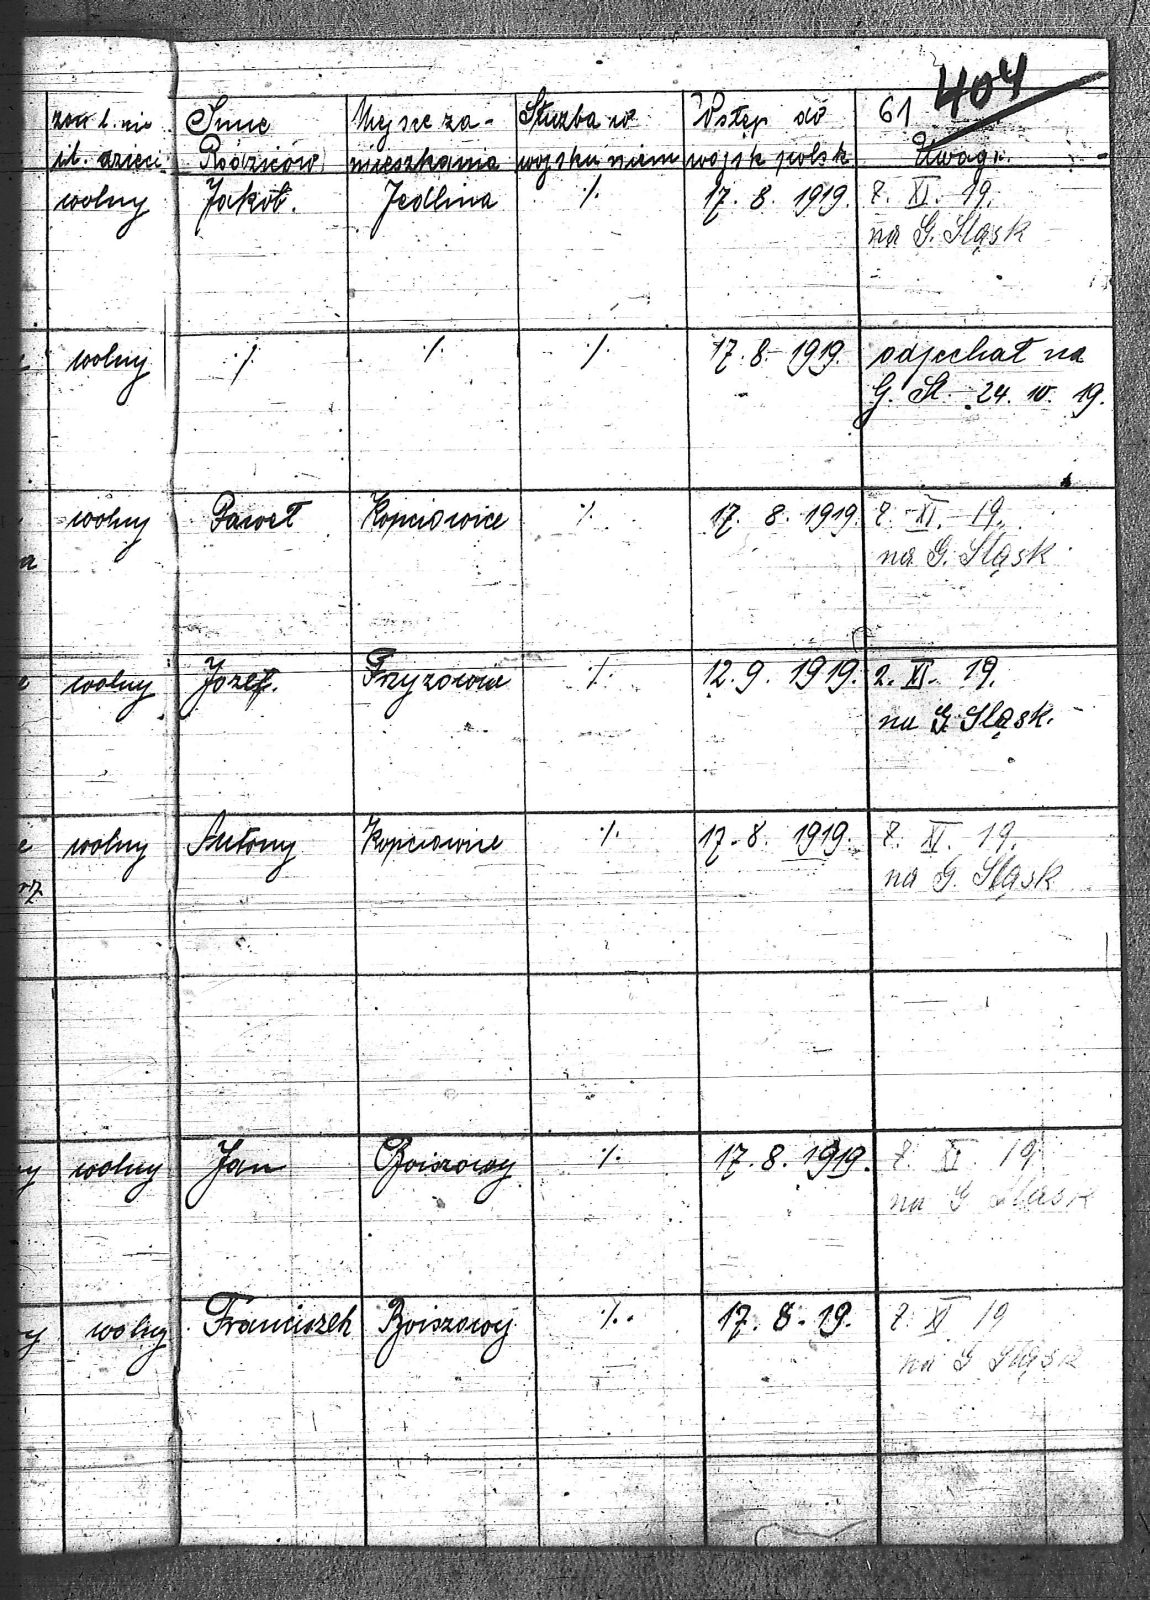 404
61
żon l. nie
il. dzieci
Imię
Rodziców
Miejsce za-
mieszkania
Służba w
wojsku niem
Wstęp do
wojsk polsk
Uwagi.
wolny Jakób. Jedlina ·/· 17. 8. 1919. 2. XI. 19.
na G. Śląsk
wolny ·/· ·/· ·/· 17. 8. 1919. odjechał na
G. Śl. 24. 10. 19.
wolny Paweł Kopciowice ·/· 17. 8. 1919. 2. XI. 19.
na G. Śląsk
a
wolny Józef. Fryzowia ·/· 12. 9. 1919. 2. XI. 19.
na G. Śląsk.
wolny Antony Kopciowice ·/· 17. 8. 1919. 2. XI. 19.
na G. Śląsk
rz
y wolny Jan Bojszowy ·/· 17. 8. 1919. 2. XI 19
na G Śląsk
y wolny Franciszek Bojszowy ·/· 17. 8. 19. 2. XI 19
na G Śląsk